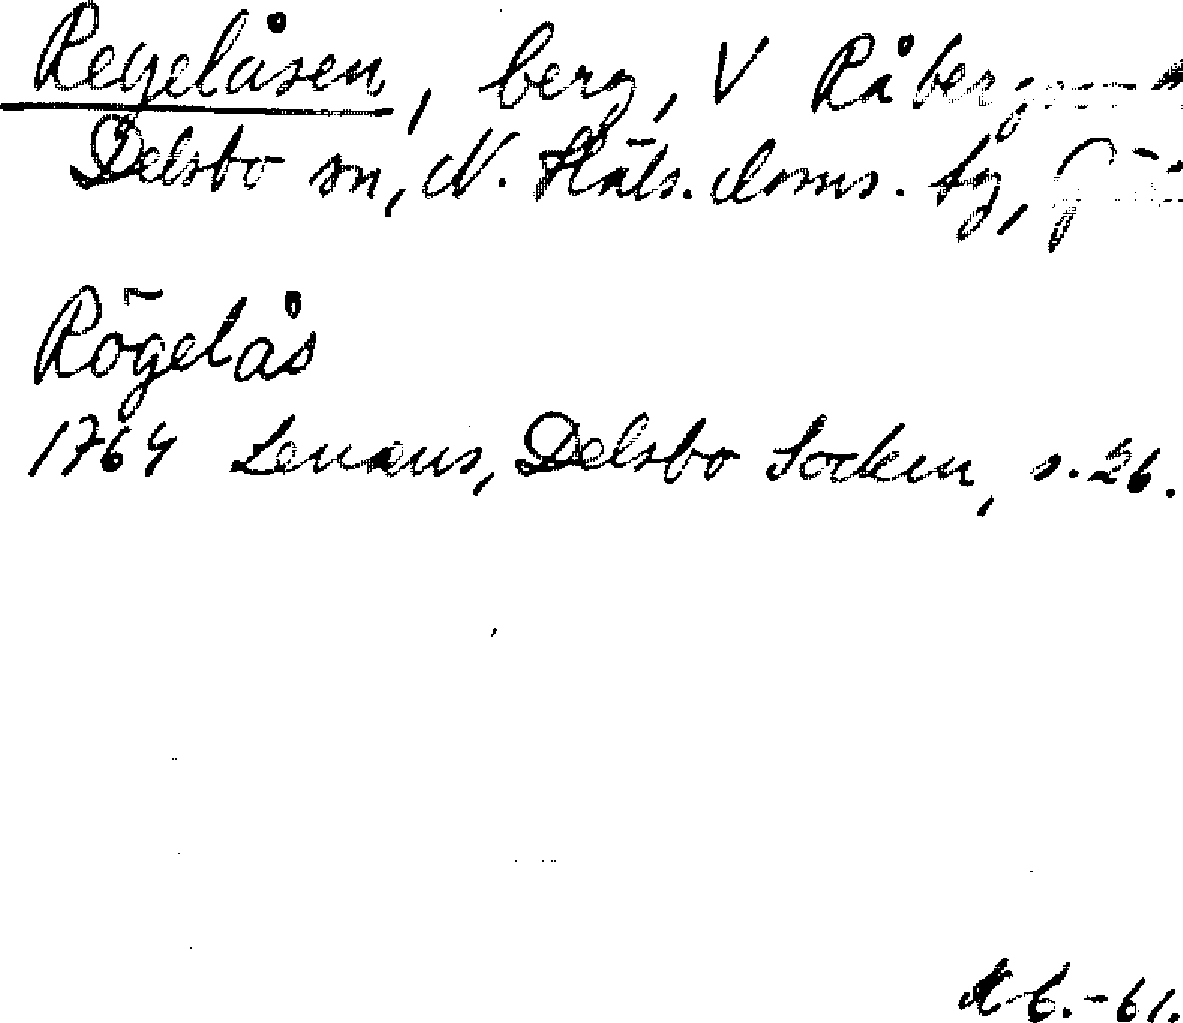 Regelåsen, berg, V Råber
Delsbo sn, N. Häls. doms. tg,
Rögelås
1764 Lenæus, Delsbo Socken, s. 26.
-61.